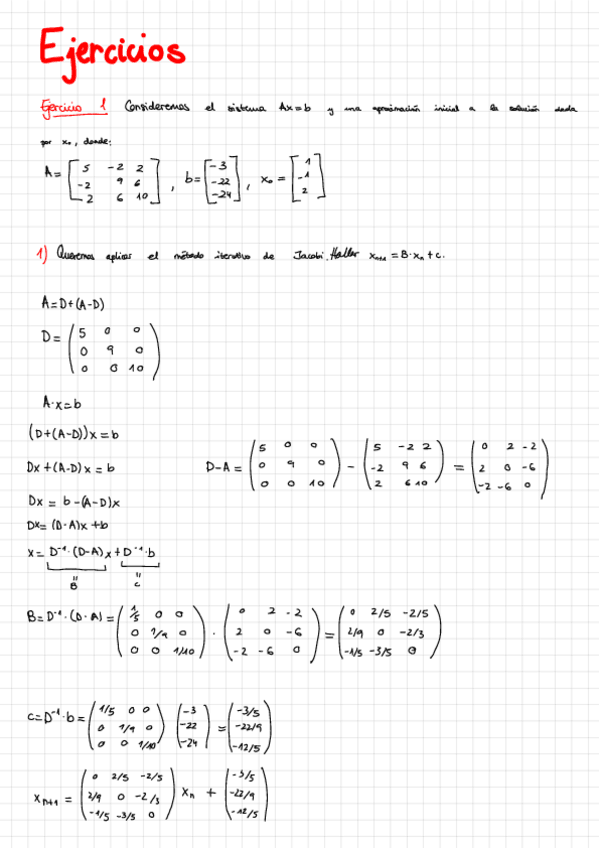 Ejercicios
Ejercicio 1 Consideremos el sistema Ax=b y una aproximación inicial a la solución dada
por x₀, donde:
A= [5 -2 2; -2 9 6; 2 6 10], b= [-3; -22; -24], x₀ = [1; -1; 2]
1) Queremos aplicar el método iterativo de Jacobi. Hallar xₙ₊₁ = B·xₙ + c.
A=D+(A-D)
D= (5 0 0; 0 9 0; 0 0 10)
A·x=b
(D+(A-D))x=b
Dx+(A-D)x=b
D-A = (5 0 0; 0 9 0; 0 0 10) - (5 -2 2; -2 9 6; 2 6 10) = (0 2 -2; 2 0 -6; -2 -6 0)
Dx = b-(A-D)x
Dx= (D-A)x+b
x= D⁻¹·(D-A)x+D⁻¹·b
= =
B c
B=D⁻¹·(D-A)= (1/5 0 0; 0 1/9 0; 0 0 1/10) · (0 2 -2; 2 0 -6; -2 -6 0) = (0 2/5 -2/5; 2/9 0 -2/3; -1/5 -3/5 0)
c=D⁻¹·b= (1/5 0 0; 0 1/9 0; 0 0 1/10) (-3; -22; -24) = (-3/5; -22/9; -12/5)
xₙ₊₁ = (0 2/5 -2/5; 2/9 0 -2/3; -1/5 -3/5 0) xₙ + (-3/5; -22/9; -12/5)